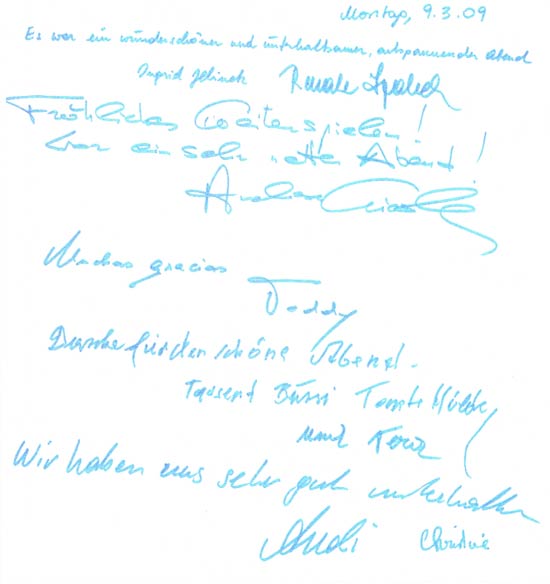 Montag, 9.3.09
Es war ein wunderschöner und unterhaltsamer, entspannender Abend
Ingrid Jelinek Renate
Fröhliches Weiterspielen!
War ein sehr netter Abend!
Andreas
Muchas gracias
Teddy
Danke für den schöne Abend.
Tausend Bussi Tante
und
Wir haben uns sehr gut unterhalten
Andi Christine